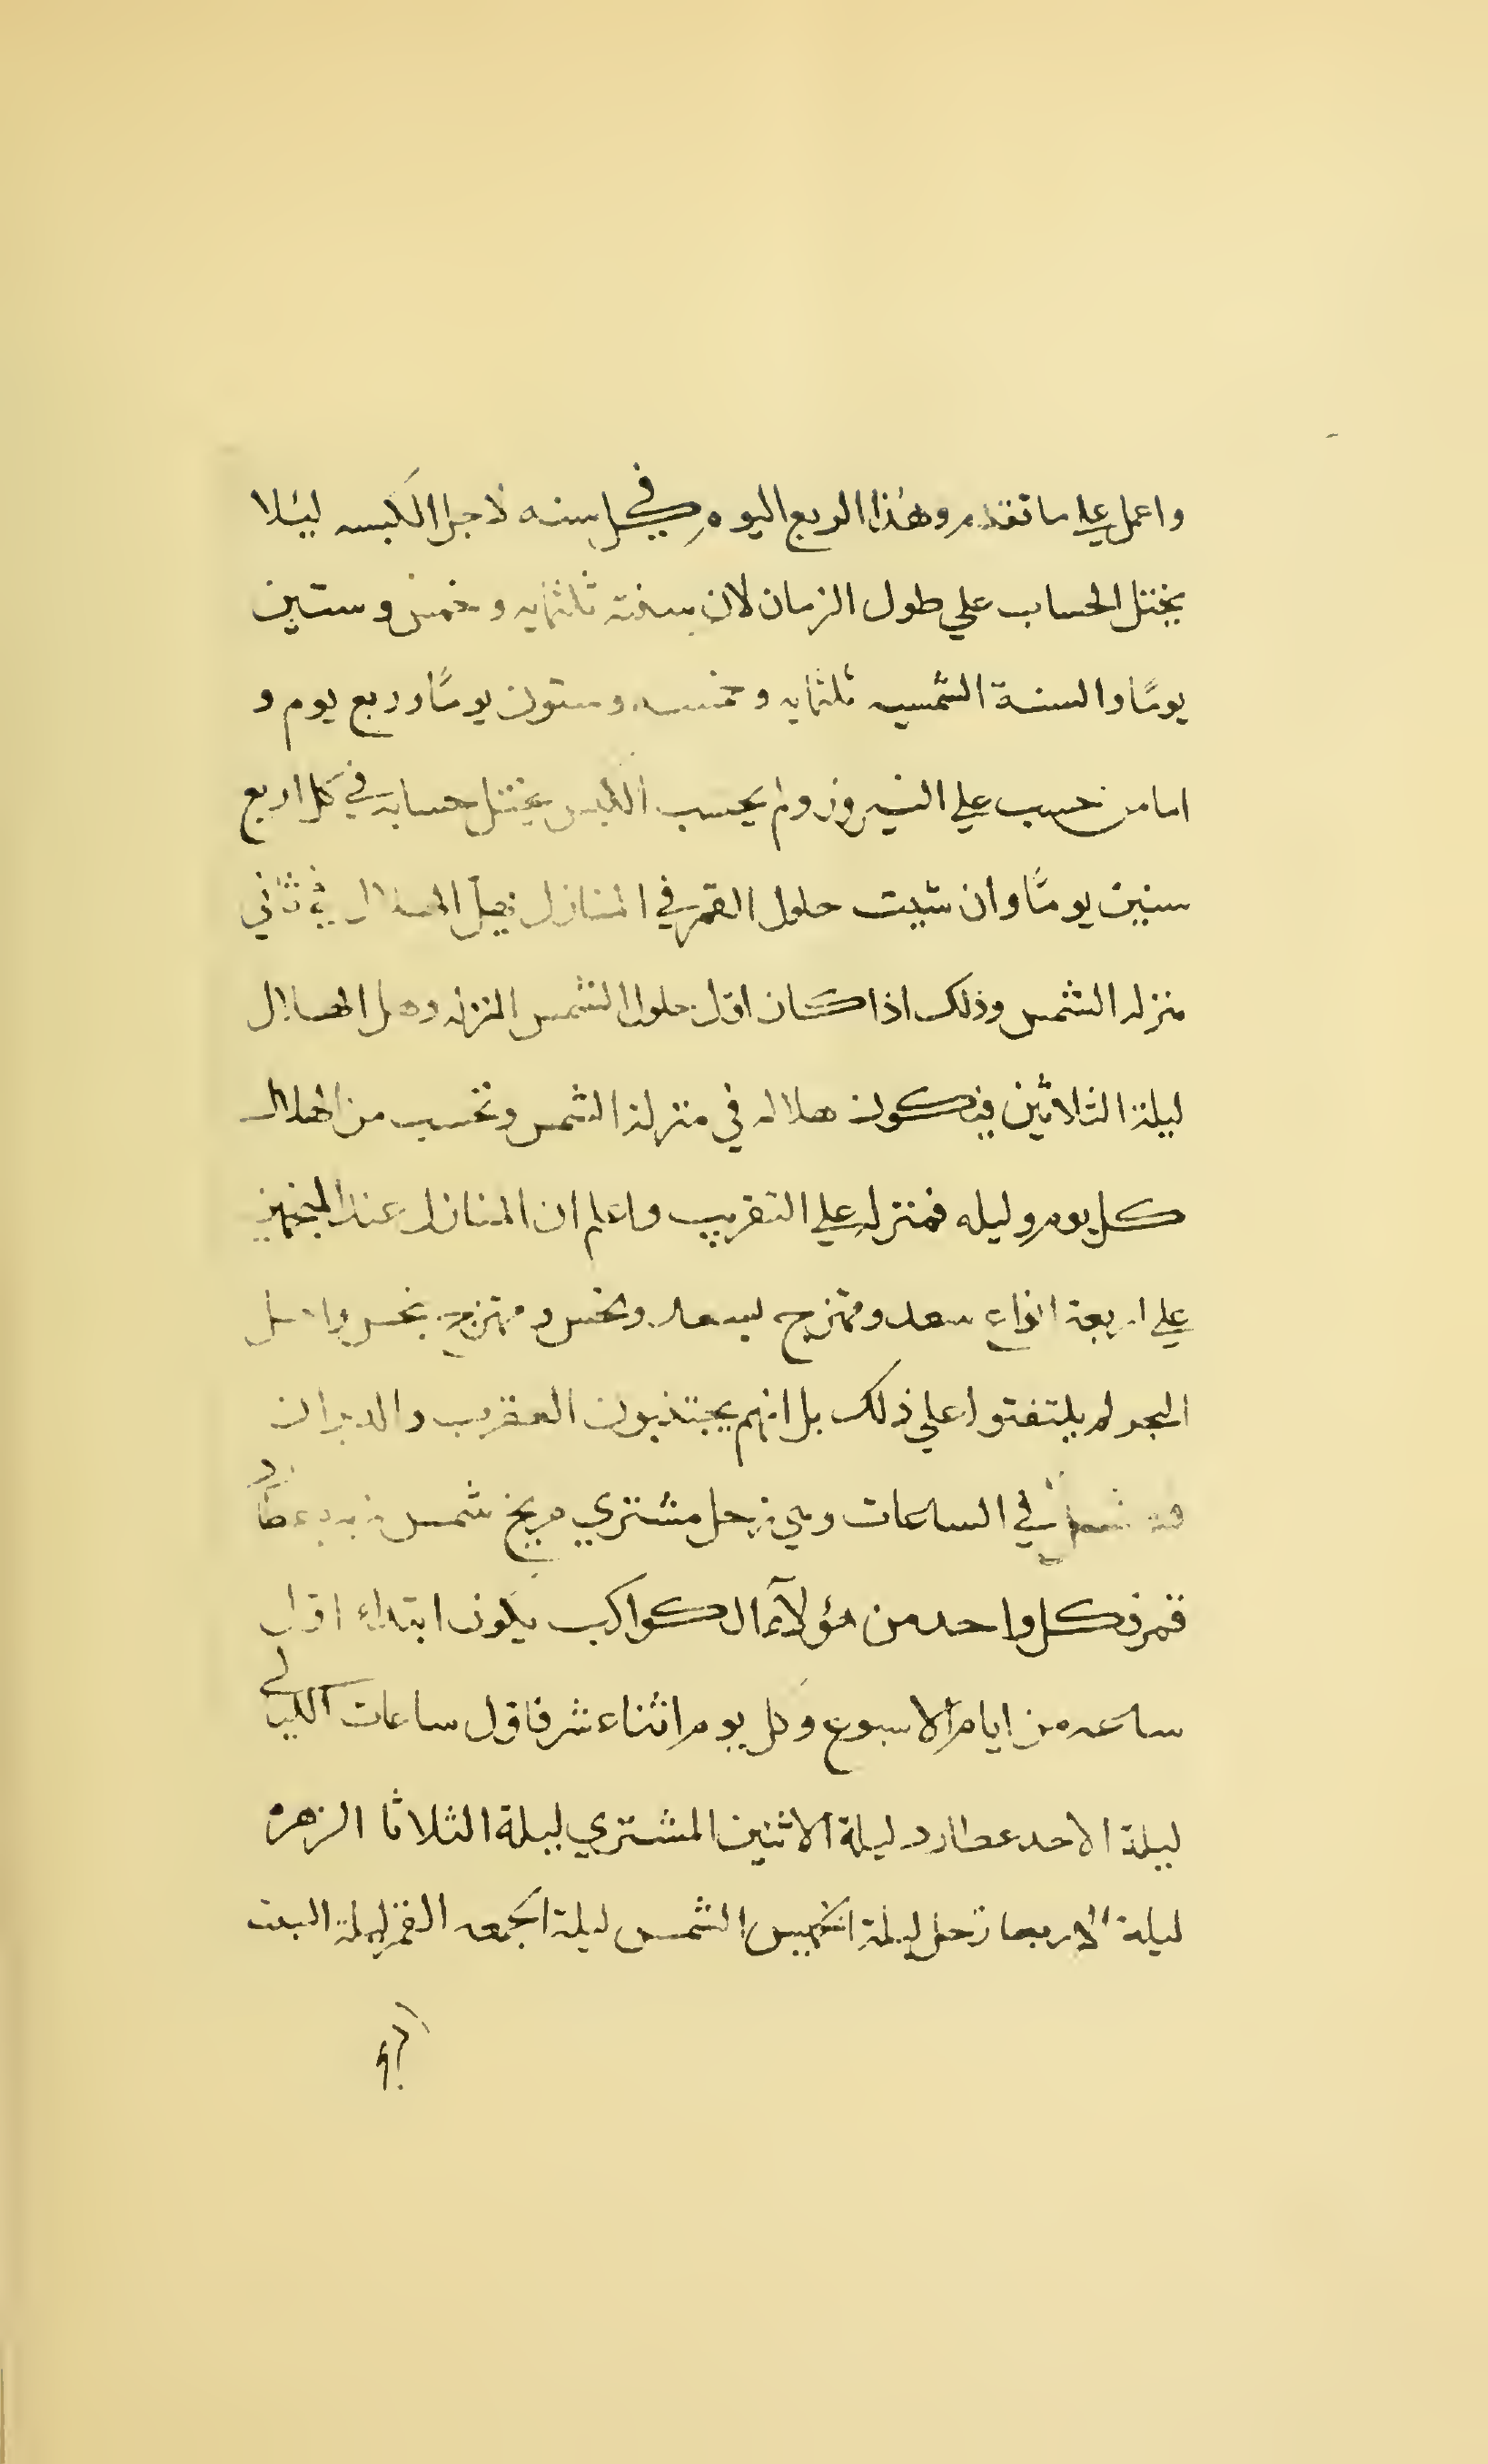 واعمل علي ما تقدم وهذا الربع اليوم في كل سنه لاجل الكبسه ليلا
يختل الحساب علي طول الزمان لان سنته ثلثمايه وخمس وستين
يومًا والسنة الشمسيه ثلثمايه وخمسه وستون يومًا وربع يوم و
امامن حسب علي النيروز ولم يحسب الكبس يختل حسابه في كل اربع
سنين يومًا وان شيت حلول القمر في المنازل في ثاني
منزله الشمس وذلك اذا كان اول حلول الشمس المنزله وهل الهلال
ليلة الثلاثين فيكون هلاله في منزلة الشمس وتحسب من الهلال
كل يوم وليله فمنزله علي التقريب واعلم ان المنازل عند المنجمين
علي اربعة انواع سعد وممتزج بسعد ونحس وممتزج بنحس واهل
البحر لم يلتفتوا علي ذلك بل انهم يجتنبون العقرب والدبران
في الساعات وهي زحل مشتري مريخ شمس زهره عطارد
قمر فكل واحد من هؤلآء الكواكب يكون ابتداء اول
ساعه من ايام الاسبوع وكل يوم اثناعشر فاول ساعات الليالي
ليلة الاحد عطارد ليلة الاثنين المشتري ليلة الثلاثا الزهره
ليلة الاربعا زحل ليلة الخميس الشمس ليلة الجمعه القمر ليلة السبت